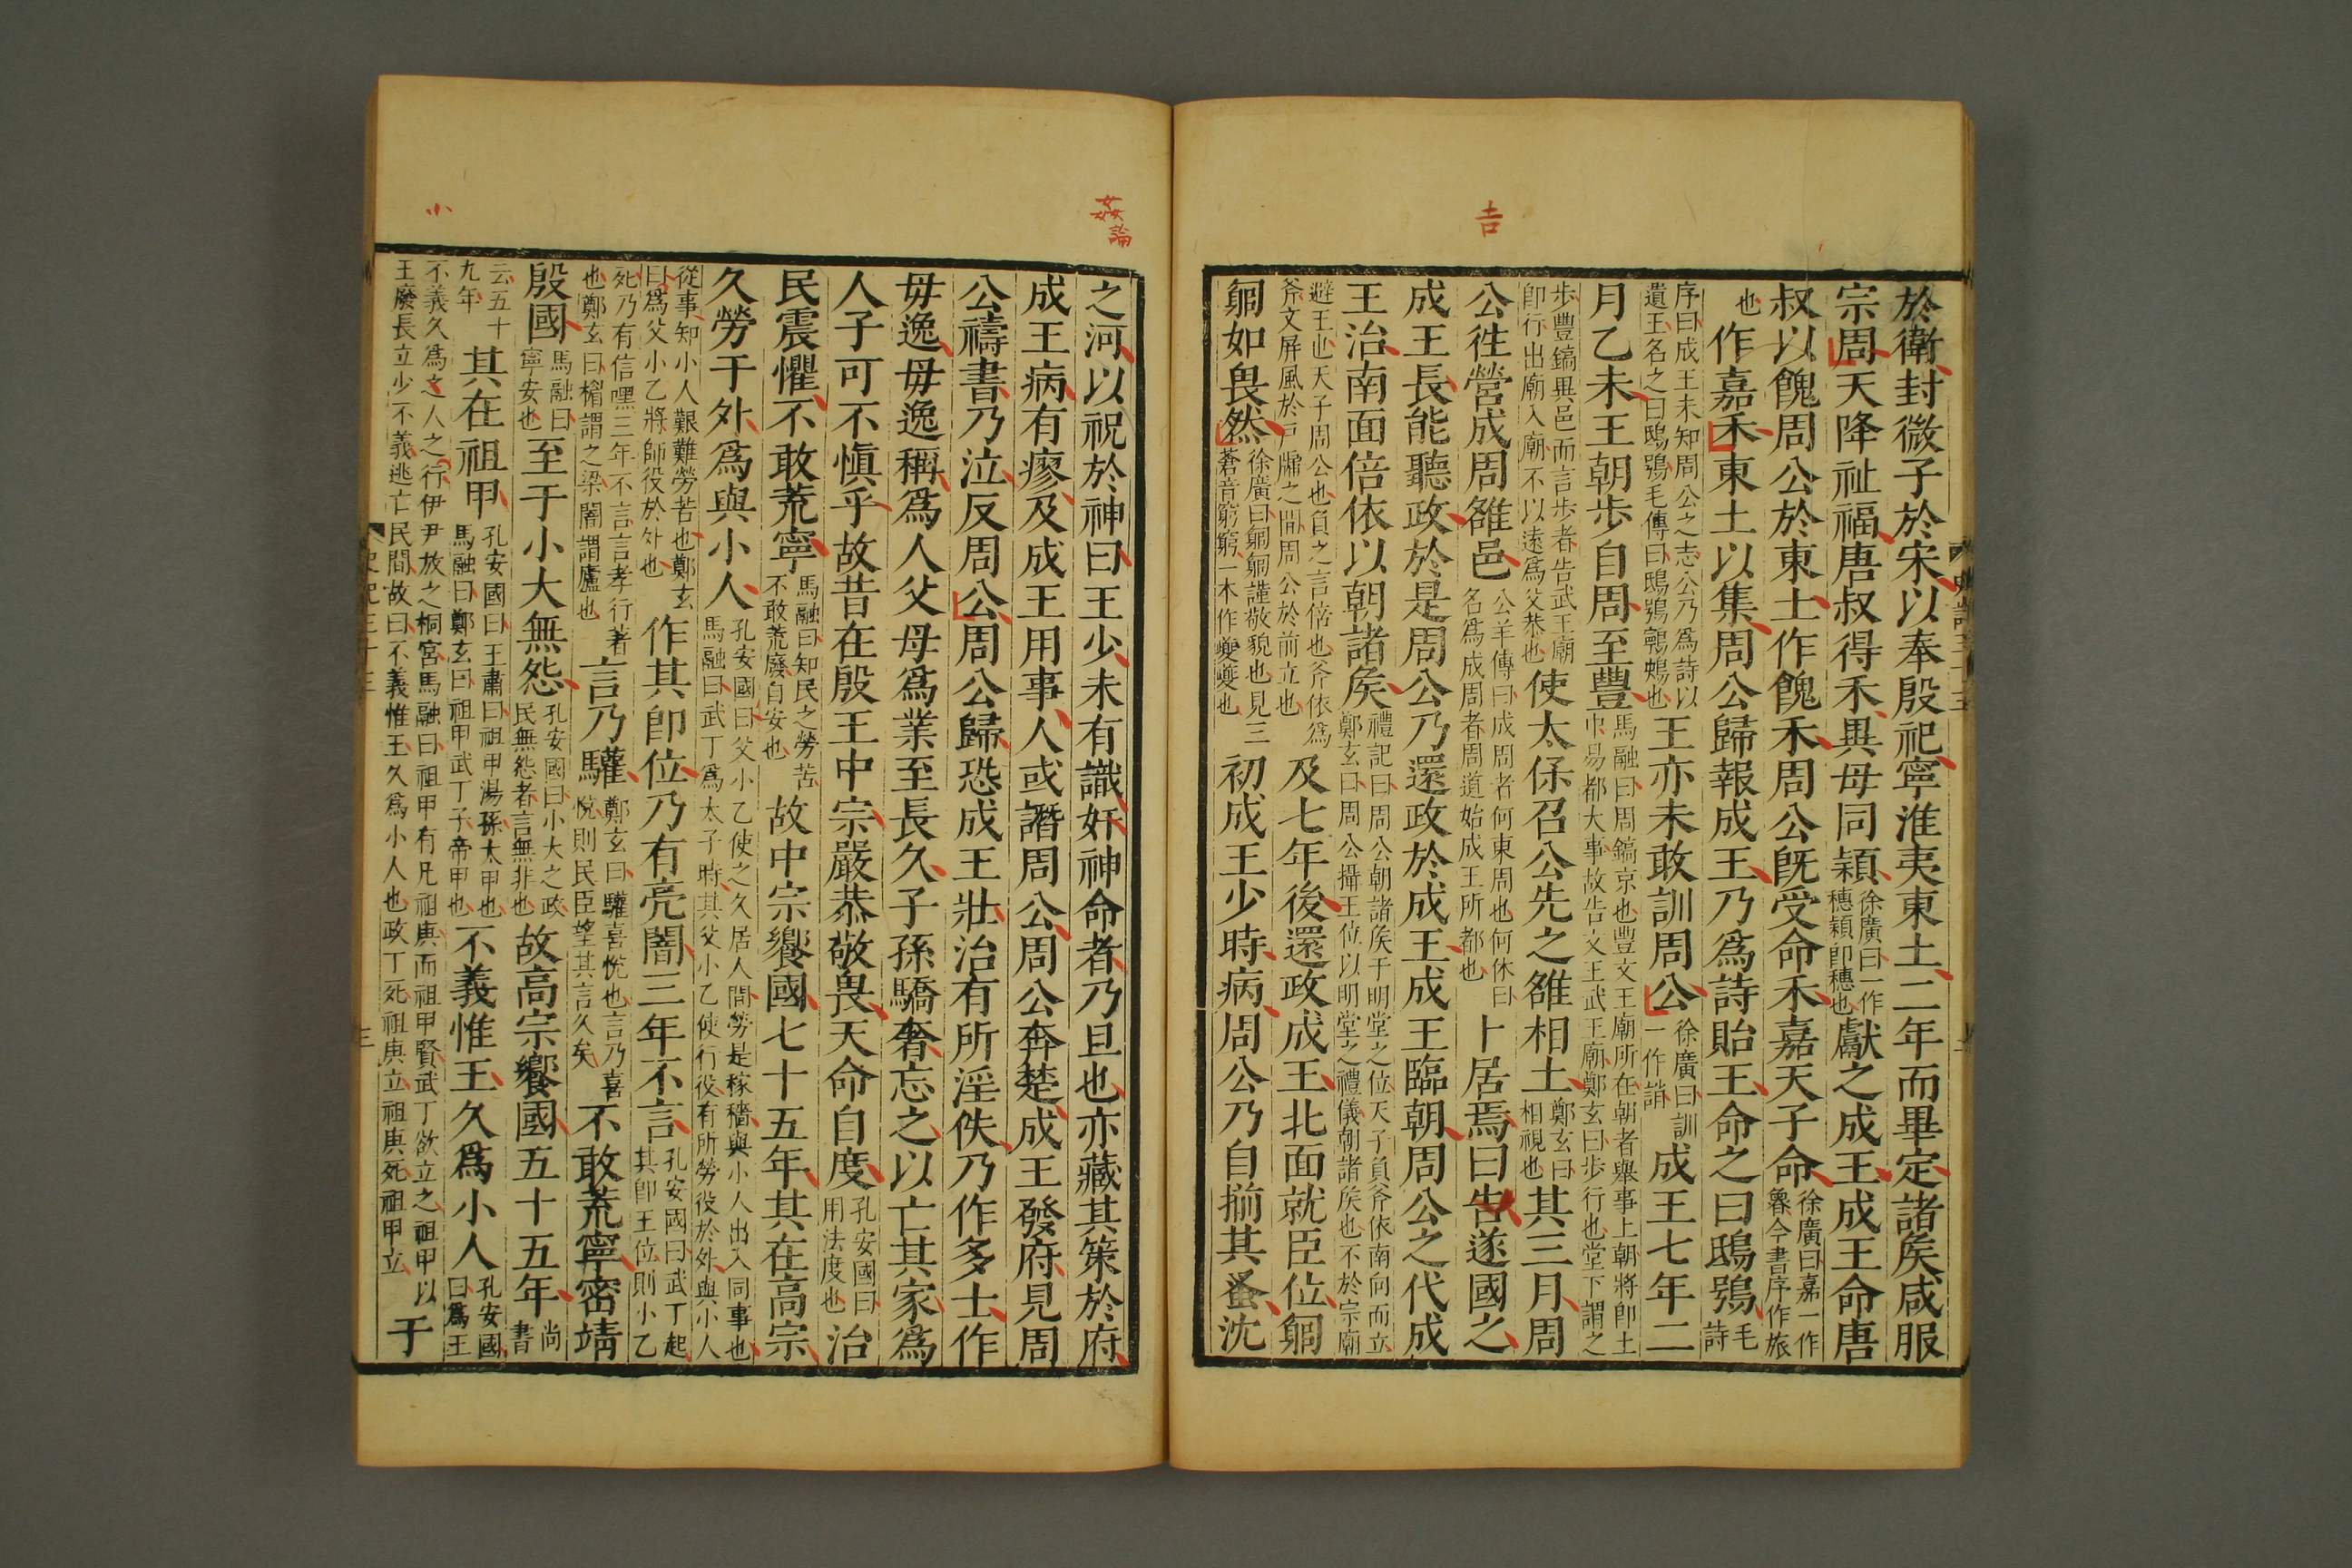 吉
於衛封微子於宋以奉殷祀寧淮夷東土二年而畢定諸矦咸服
宗周天降祉福唐叔得禾異母同穎徐廣曰一作穗穎卽穗也獻之成王成王命唐
叔以餽周公於東土作餽禾周公旣受命禾嘉天子命徐廣曰嘉一作魯今書序作旅
也作嘉禾東土以集周公歸報成王乃爲詩貽王命之曰鴟鴞毛詩
序曰成王未知周公之志公乃爲詩以遺王名之曰鴟鴞毛傳曰鴟鴞鸋鴂也王亦未敢訓周公徐廣曰訓一作誚成王七年二
月乙未王朝步自周至豐馬融曰周鎬京也豐文王廟所在朝者舉事上朝將卽土中易都大事故告文王武王廟鄭玄曰步行也堂下謂之
步豐鎬異邑而言步者告武王廟卽行出廟入廟不以遠爲父恭也使太保召公先之雒相土鄭玄曰相視也其三月周
公往營成周雒邑公羊傳曰成周者何東周也何休曰名爲成周者周道始成王所都也卜居焉曰吉遂國之
成王長能聽政於是周公乃還政於成王成王臨朝周公之代成
王治南面倍依以朝諸矦禮記曰周公朝諸矦于明堂之位天子負斧依南向而立鄭玄曰周公攝王位以明堂之禮儀朝諸矦也不於宗廟
避王也天子周公也負之言倍也斧依爲斧文屏風於戶牖之間周公於前立也及七年後還政成王北面就臣位匔
匔如畏然徐廣曰匔匔謹敬貌也見三蒼音窮窮一本作夔夔也初成王少時病周公乃自揃其蚤沈
之河以祝於神曰王少未有識奸神命者乃旦也亦藏其策於府
成王病有瘳及成王用事人或譖周公周公奔楚成王發府見周
公禱書乃泣反周公周公歸恐成王壯治有所淫佚乃作多士作
毋逸毋逸稱爲人父母爲業至長久子孫驕奢忘之以亡其家爲
人子可不慎乎故昔在殷王中宗嚴恭敬畏天命自度孔安國曰用法度也治
民震懼不敢荒寧馬融曰知民之勞苦不敢荒廢自安也故中宗饗國七十五年其在高宗
久勞于外爲與小人孔安國曰父小乙使之久居人間勞是稼穡與小人出入同事也馬融曰武丁爲太子時其父小乙使行役有所勞役於外與小人
從事知小人艱難勞苦也鄭玄曰爲父小乙將師役於外也作其卽位乃有亮闇三年不言孔安國曰武丁起其卽王位則小乙
死乃有信嘿三年不言言孝行著也鄭玄曰楣謂之梁闇謂廬也言乃驩鄭玄曰驩喜悅也言乃喜悅則民臣望其言久矣不敢荒寧密靖
殷國馬融曰寧安也至于小大無怨孔安國曰小大之政民無怨者言無非也故高宗饗國五十五年尚書
云五十九年其在祖甲孔安國曰王肅曰祖甲湯孫太甲也馬融曰鄭玄曰祖甲武丁子帝甲也不義惟王久爲小人孔安國曰爲王
不義久爲小人之行伊尹放之桐宮馬融曰祖甲有兄祖庚而祖甲賢武丁欲立之祖甲以王廢長立少不義逃亡民間故曰不義惟王久爲小人也武丁死祖庚立祖庚死祖甲立于